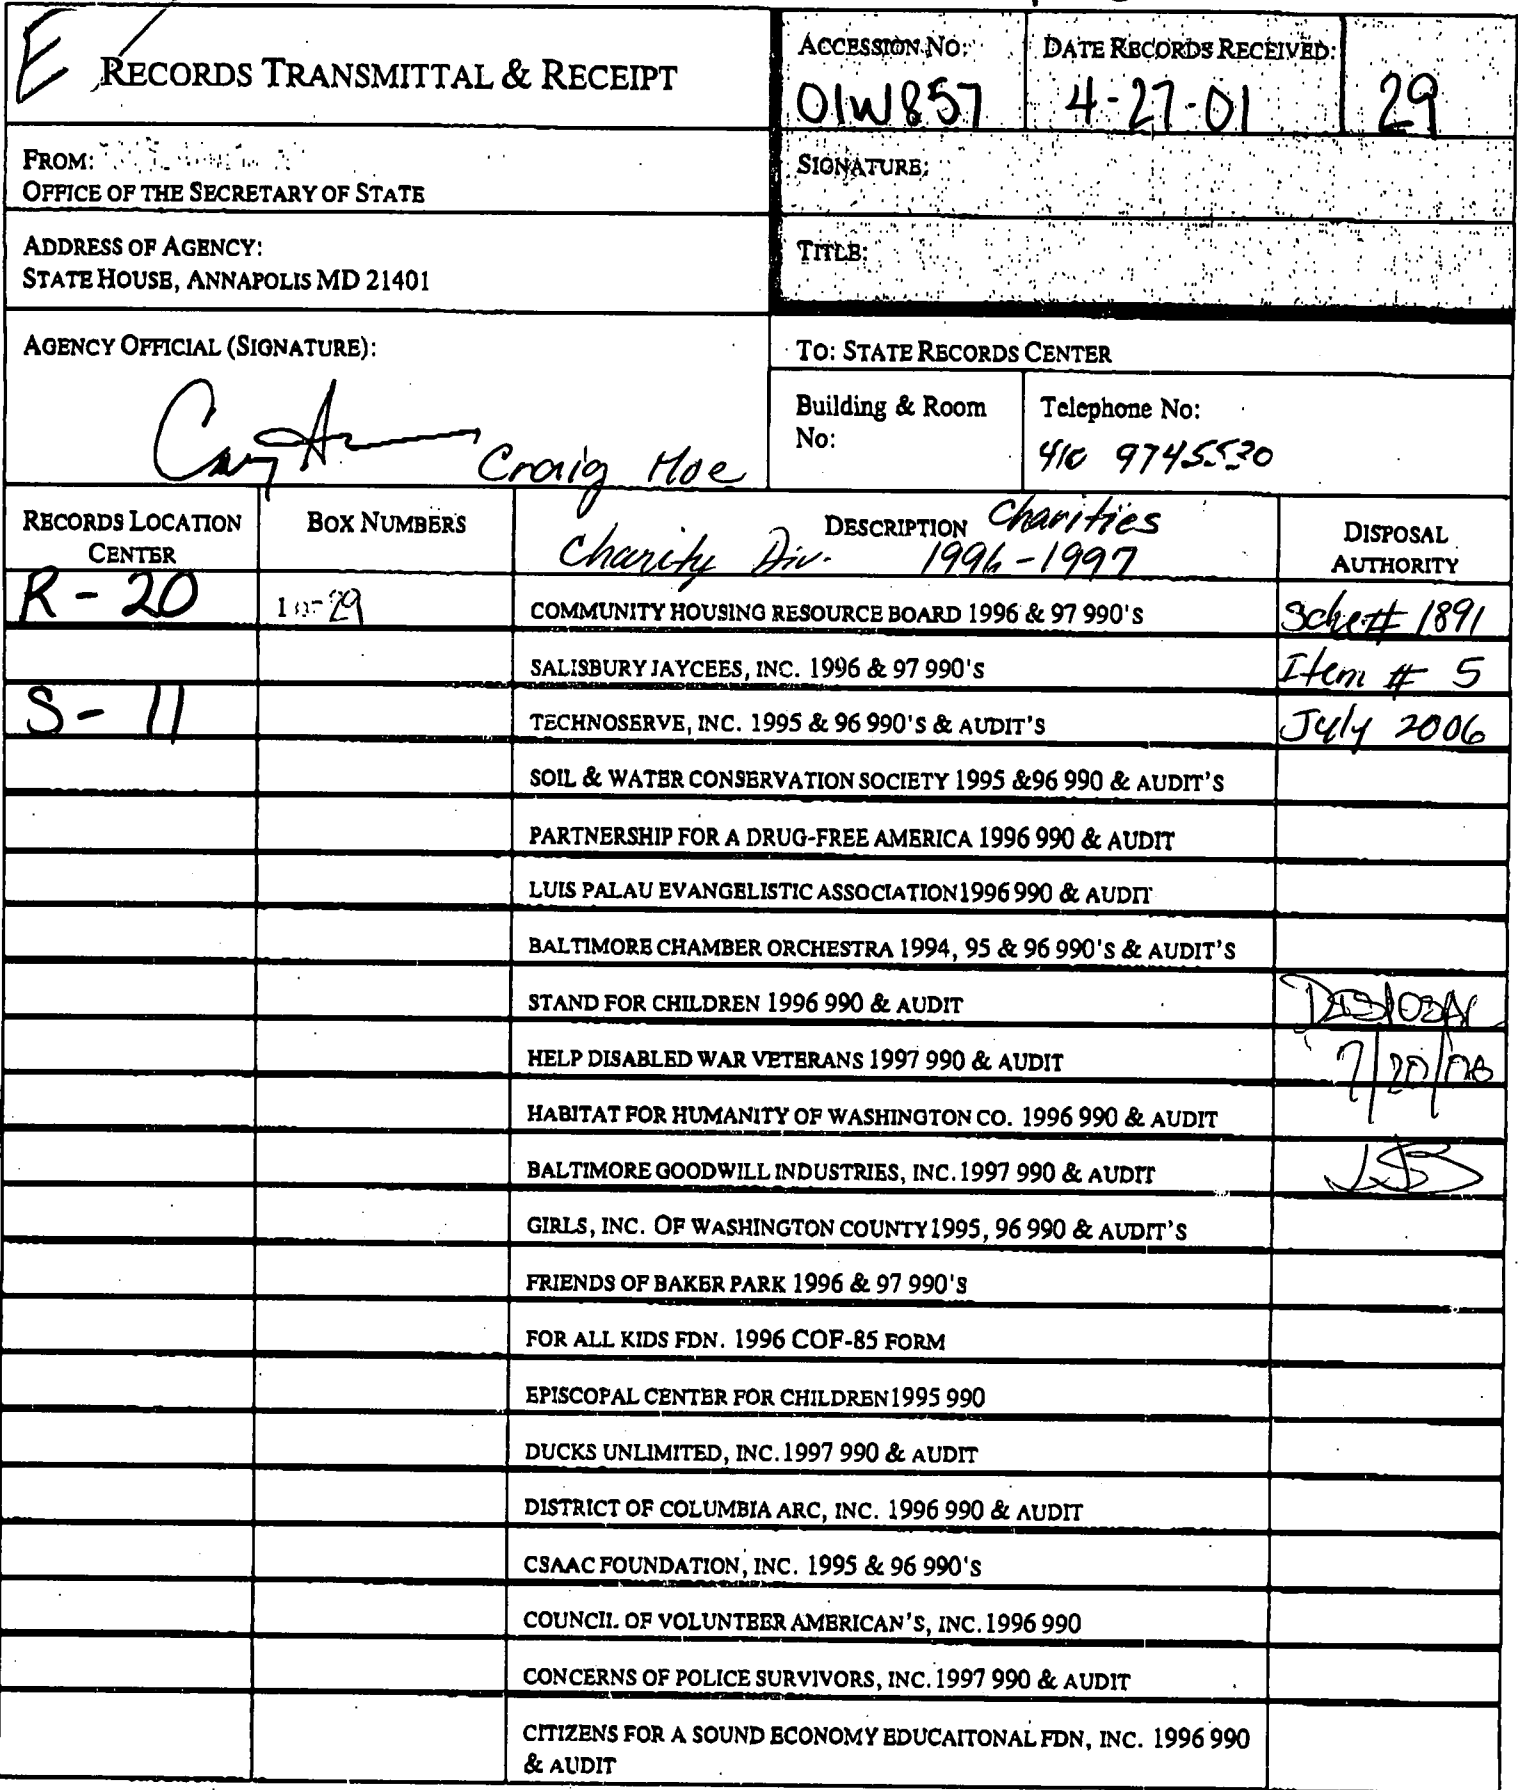 E
RECORDS TRANSMITTAL & RECEIPT
ACCESSION NO:
01W857
DATE RECORDS RECEIVED:
4-27-01
29
FROM:
OFFICE OF THE SECRETARY OF STATE
SIGNATURE:
ADDRESS OF AGENCY:
STATE HOUSE, ANNAPOLIS MD 21401
TITLE:
AGENCY OFFICIAL (SIGNATURE):
Craig Hoe
TO: STATE RECORDS CENTER
Building & Room
No:
Telephone No:
410 9745530
RECORDS LOCATION
CENTER
BOX NUMBERS
DESCRIPTION Charities
Charity Div. 1996-1997
DISPOSAL
AUTHORITY
R-20 1 OF 29 COMMUNITY HOUSING RESOURCE BOARD 1996 & 97 990'S Sche# 1891
SALISBURY JAYCEES, INC. 1996 & 97 990'S Item # 5
S-11 TECHNOSERVE, INC. 1995 & 96 990'S & AUDIT'S July 2006
SOIL & WATER CONSERVATION SOCIETY 1995 &96 990 & AUDIT'S
PARTNERSHIP FOR A DRUG-FREE AMERICA 1996 990 & AUDIT
LUIS PALAU EVANGELISTIC ASSOCIATION1996 990 & AUDIT
BALTIMORE CHAMBER ORCHESTRA 1994, 95 & 96 990'S & AUDIT'S
STAND FOR CHILDREN 1996 990 & AUDIT DISPOSAL
HELP DISABLED WAR VETERANS 1997 990 & AUDIT 7/20/06
HABITAT FOR HUMANITY OF WASHINGTON CO. 1996 990 & AUDIT
BALTIMORE GOODWILL INDUSTRIES, INC.1997 990 & AUDIT
GIRLS, INC. OF WASHINGTON COUNTY1995, 96 990 & AUDIT'S
FRIENDS OF BAKER PARK 1996 & 97 990'S
FOR ALL KIDS FDN. 1996 COF-85 FORM
EPISCOPAL CENTER FOR CHILDREN1995 990
DUCKS UNLIMITED, INC.1997 990 & AUDIT
DISTRICT OF COLUMBIA ARC, INC. 1996 990 & AUDIT
CSAAC FOUNDATION, INC. 1995 & 96 990'S
COUNCIL OF VOLUNTEER AMERICAN'S, INC.1996 990
CONCERNS OF POLICE SURVIVORS, INC.1997 990 & AUDIT
CITIZENS FOR A SOUND ECONOMY EDUCAITONAL FDN, INC. 1996 990
& AUDIT